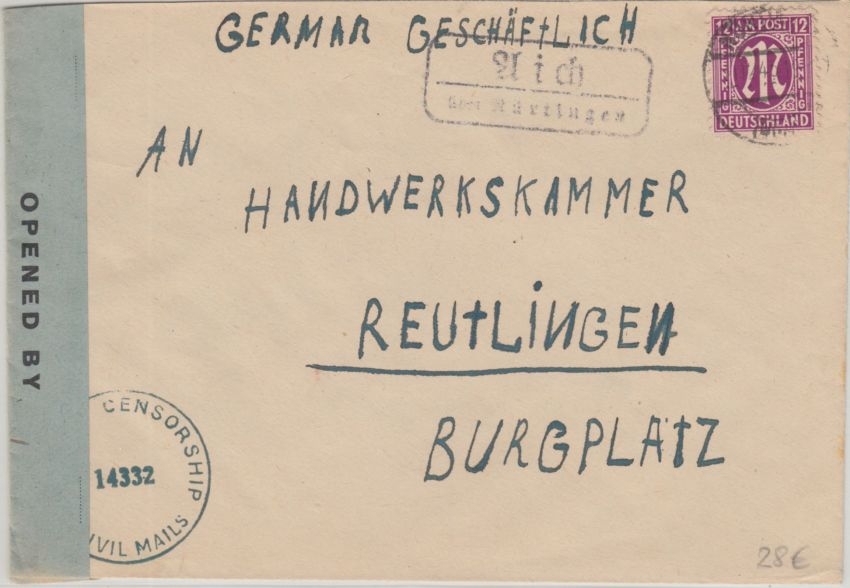 GERMAN GESCHÄFTLICH
Aich
über Nürtingen
12 AM POST 12
PFENNIG PFENNIG
M
DEUTSCHLAND
AN
HANDWERKSKAMMER
REUTLINGEN
BURGPLATZ
OPENED BY
CENSORSHIP
14332
IVIL MAILS
28€